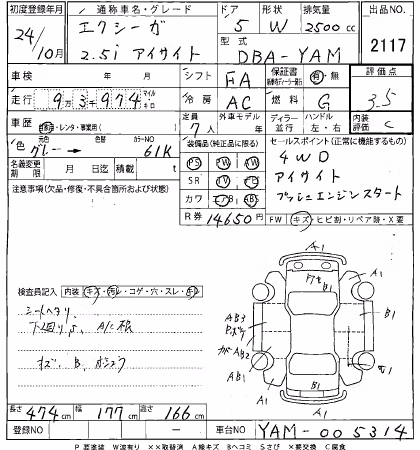 初度登録年月 通称車名・グレード ドア 形状 排気量 出品NO.
24/10月 エクシーガ 2.5i アイサイト 5 W 2500cc 2117
型式 DBA-YAM
車検 年 月 シフト FA 保証書 有・無 評価点
走行 9万3千974 マイル キロ 冷房 AC 燃料 G 3.5
車歴 自家・レンタ・事業用( ) 定員 7人 外車モデル 年 ディーラー 並行 ハンドル 左・右 内装評価 C
色 元色 グレー → 色替 カラーNO 61K
名義変更期限 月 日迄 積載 t
装備品(純正品に限る)
PS PW AW
SR TV ナビ
カワ エアB ABS
R券 14650円
セールスポイント(正常に機能するもの)
4WD
アイサイト
プッシュエンジンスタート
注意事項(欠品・修復・不具合箇所および状態)
FW (キズ・ヒビ割・リペア跡・X要
検査員記入 内装(キズ・汚レ・コゲ・穴・スレ・
シートヘタリ
下廻りS A/C
キズ B
A1 A1 A1 B1 AB3 AB2 AB1 A1 B1 A1
長さ 474cm 幅 177cm 高さ 166cm
登録NO － 車台NO YAM-005314
P要塗装 W波有り XX取替済 A線キズ Bヘコミ Sさび X要交換 C腐食